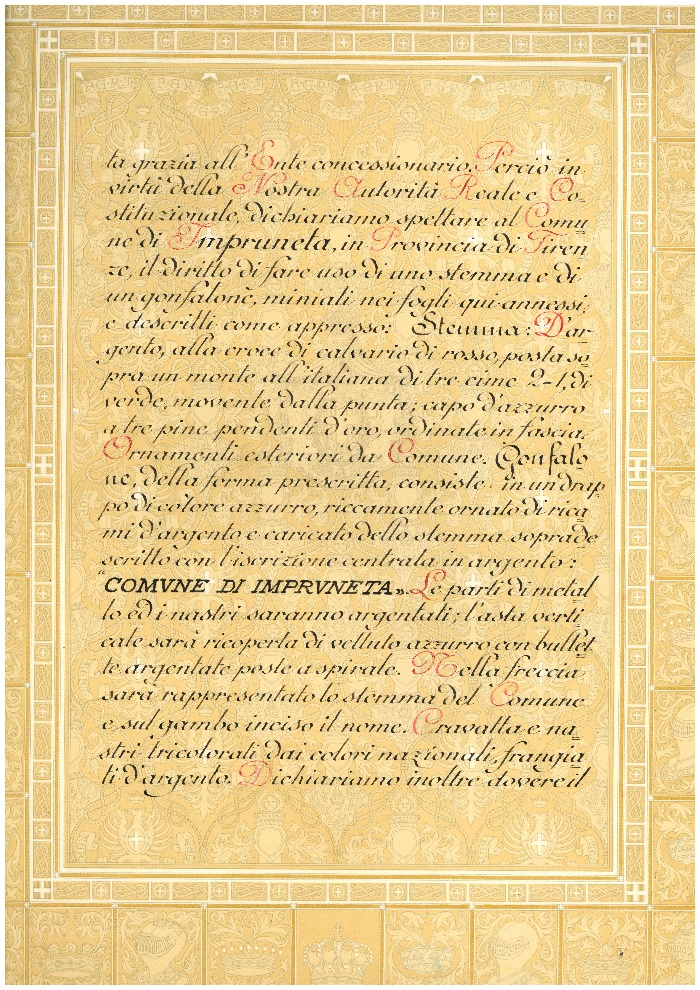 ta grazia all' Ente concessionario. Perciò in
virtù della Nostra Autorità Reale e Co-
stituzionale, dichiariamo spettare al Comu
ne di Impruneta, in Provincia di Firen
ze, il diritto di fare uso di uno stemma e di
un gonfalone, miniati nei fogli qui annessi,
e descritti come appresso: Stemma: D'ar
gento, alla croce di calvario di rosso, posta so
pra un monte all'italiana di tre cime 2-1, di
verde, movente dalla punta; capo d'azzurro
a tre pine pendenti d'oro, ordinate in fascia.
Ornamenti esteriori da Comune. Gonfalo
ne, della forma prescritta, consiste in un drap
po di colore azzurro, riccamente ornato di rica
mi d'argento e caricato dello stemma soprade
scritto con l'iscrizione centrata in argento:
"COMVNE DI IMPRVNETA". Le parti di metal
lo ed i nastri saranno argentati; l'asta verti
cale sarà ricoperta di velluto azzurro con bullet
te argentate poste a spirale. Nella freccia
sarà rappresentato lo stemma del Comune
e sul gambo inciso il nome. Cravatta e na
stri tricolorati dai colori nazionali, frangia
ti d'argento. Dichiariamo inoltre dovere il